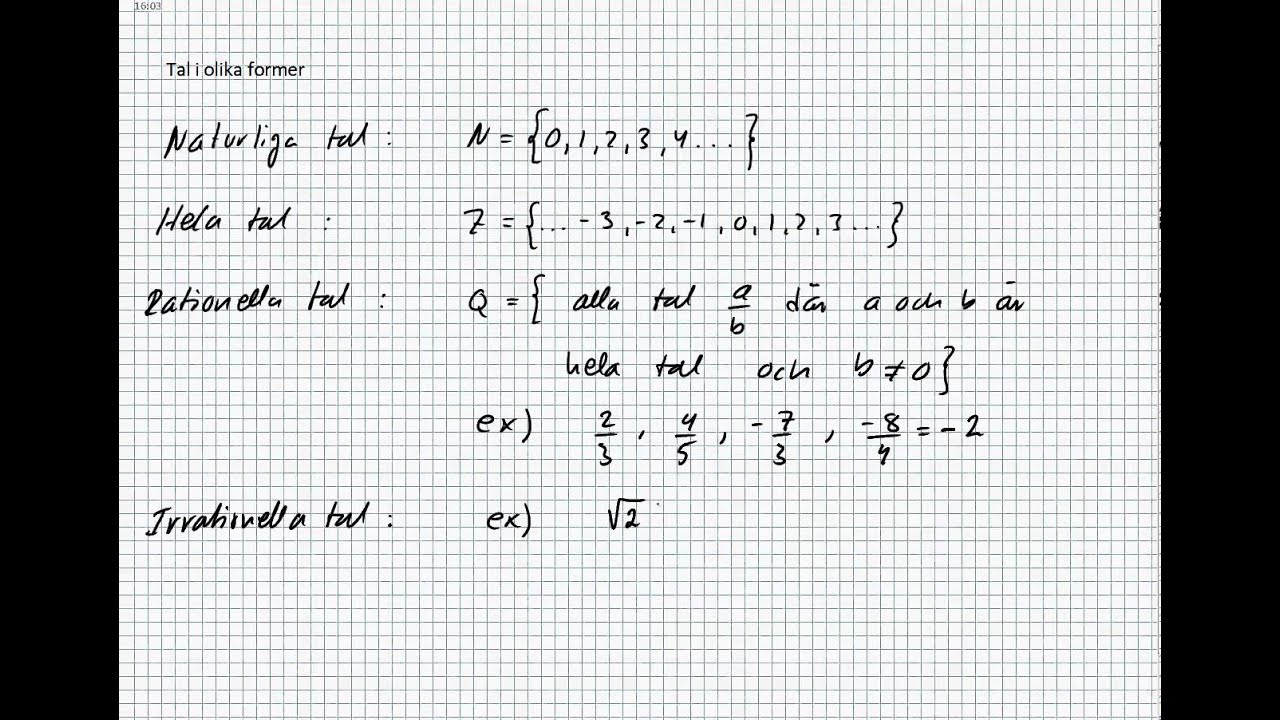 16:03
Tal i olika former
Naturliga tal : N = {0, 1, 2, 3, 4 ... }
Hela tal : Z = {... -3, -2, -1, 0, 1, 2, 3 ... }
Rationella tal : Q = { alla tal a/b där a och b är
hela tal och b ≠ 0}
ex) 2/3 , 4/5 , -7/3 , -8/4 = -2
Irrationella tal : ex) √2